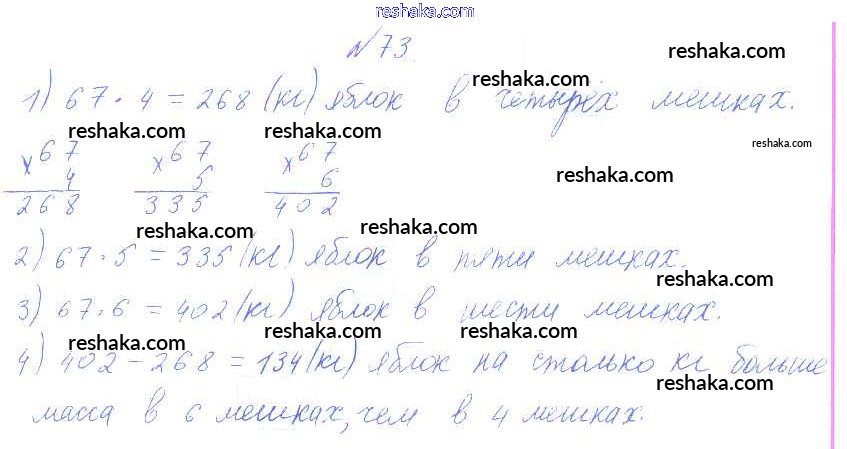 reshaka.com
№73
reshaka.com
1) 67 · 4 = 268 (кг) яблок в четырёх мешках.
reshaka.com
reshaka.com reshaka.com reshaka.com
×67 ×67 ×67
4 5 6
reshaka.com
268 335 402
reshaka.com reshaka.com
2) 67 · 5 = 335 (кг) яблок в пяти мешках.
reshaka.com
3) 67 · 6 = 402 (кг) яблок в шести мешках.
reshaka.com reshaka.com reshaka.com
4) 402 - 268 = 134 (кг) яблок на столько кг больше
reshaka.com
масса в 6 мешках, чем в 4 мешках.